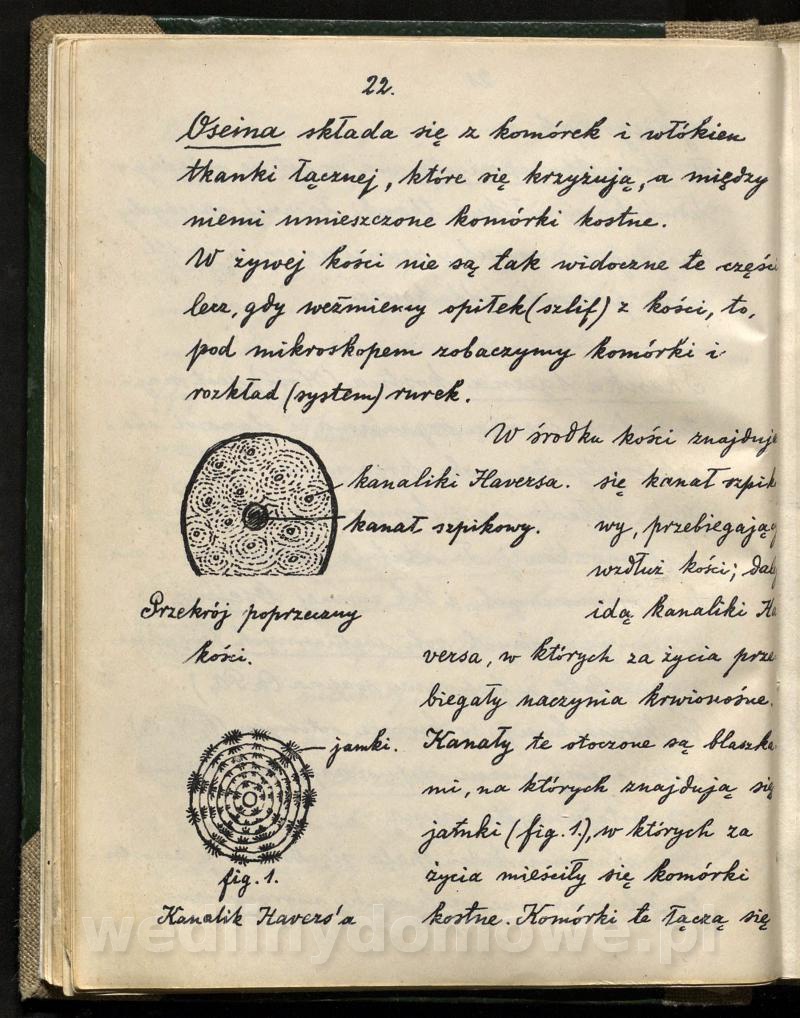 22.
Oseina składa się z komórek i włókien
tkanki łącznej, które się krzyżują, a między
niemi umieszczone komórki kostne.
W żywej kości nie są tak widoczne te części
lecz, gdy weźmiemy opiłek (szlif) z kości, to,
pod mikroskopem zobaczymy komórki i
rozkład (system) rurek.
W środku kości znajduje
się kanał szpiko
wy, przebiegając
wzdłuż kości; dalej
idą kanaliki Ha
versa, w których za życia prze
biegały naczynia krwionośne.
Kanały te otoczone są blaszka
mi, na których znajdują się
jamki (fig. 1.), w których za
życia mieściły się komórki
kostne. Komórki te łączą się
kanaliki Haversa.
kanał szpikowy.
Przekrój poprzeczny
kości.
jamki.
fig. 1.
Kanalik Havers'a
wedlinydomowe.pl